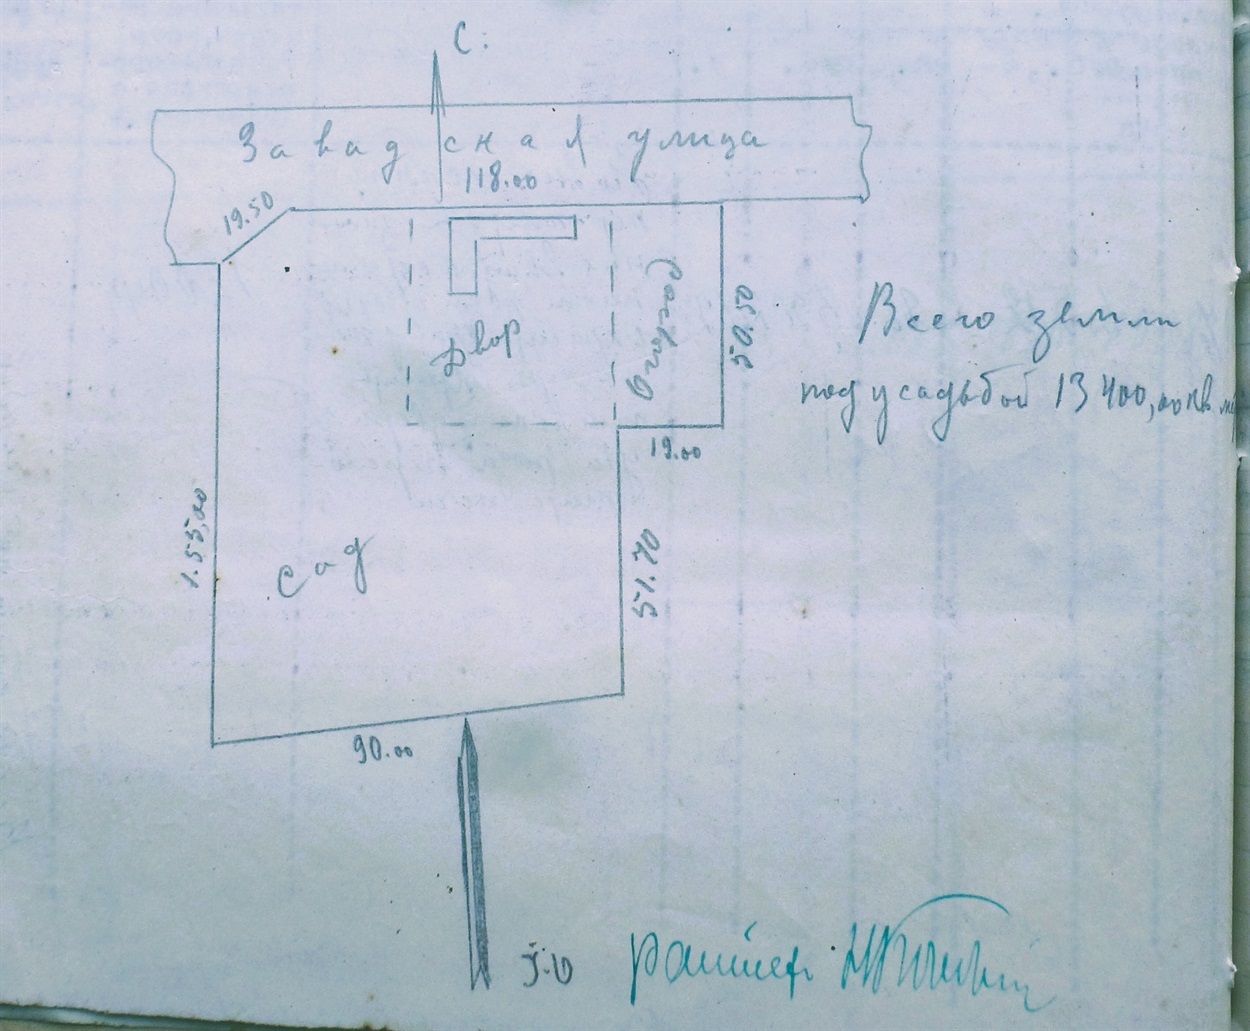 С.
Завадская улица
118.00
19.50
Двор
Огород
50.50
Всего земли
под усадьбой 13400,00 кв. м
19.00
1.55,00
51.70
Сад
90.00